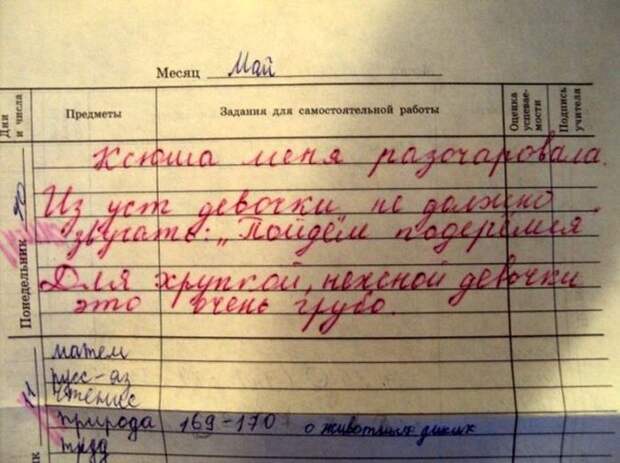 Месяц Май
Дни и числа
Предметы
Задания для самостоятельной работы
Оценка успевае-мости
Подпись учителя
Понедельник 10
Ксюша меня разочаровала.
Из уст девочки не должно
звучать: „Пойдём подерёмся.
Для хрупкой, нежной девочки
это очень грубо.
11
матем
русс-яз
чтение
природа 169-170 о животных диких
труд
ик